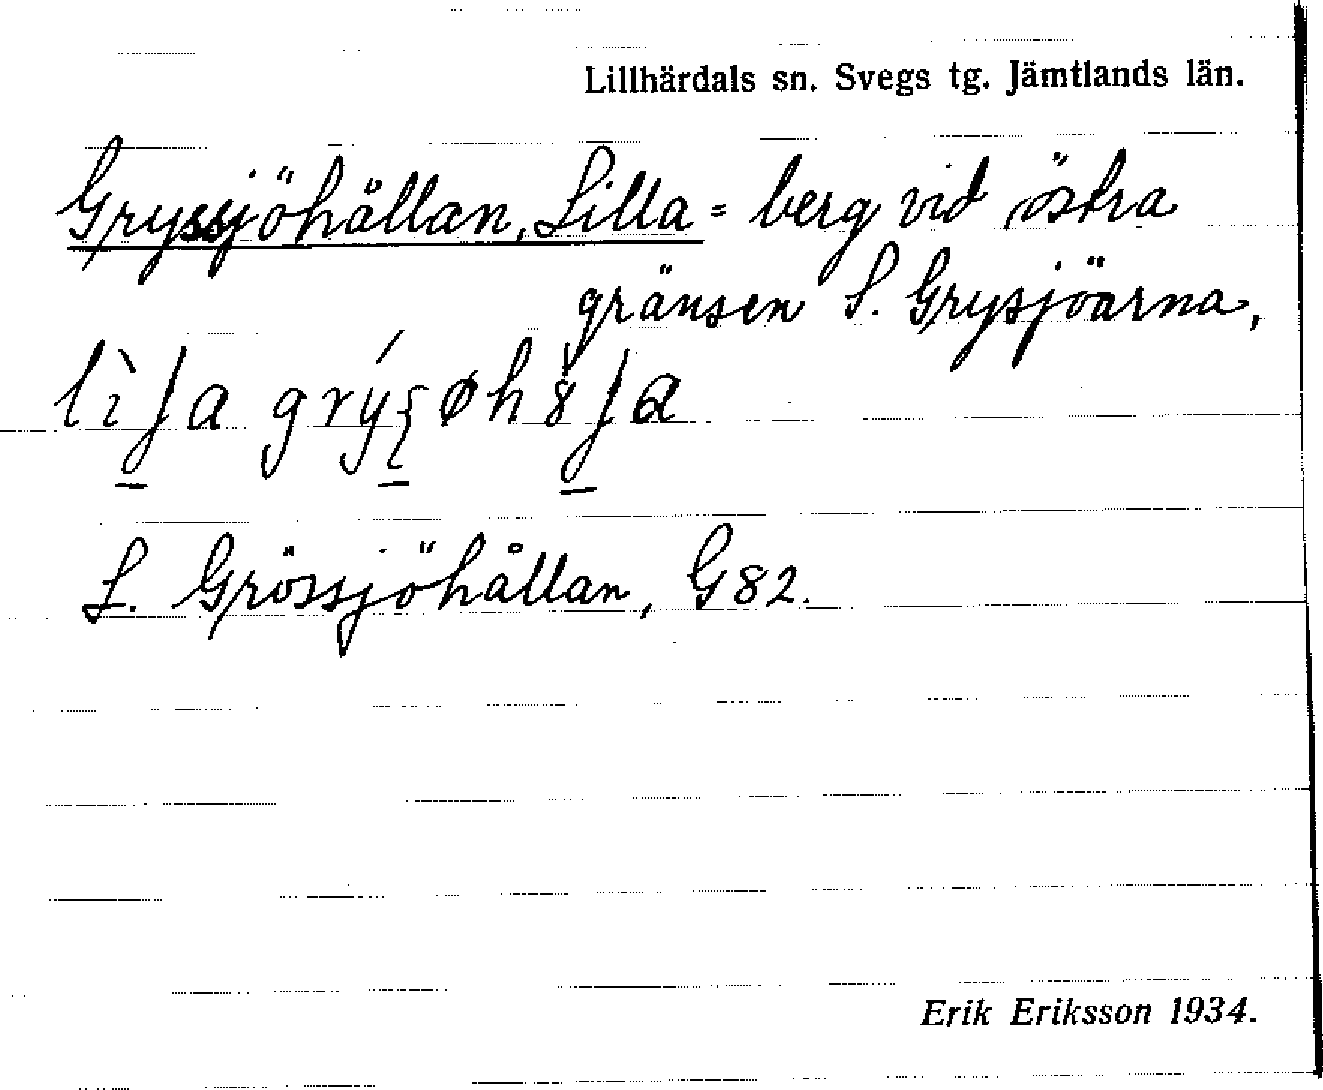 Lillhärdals sn. Svegs tg. Jämtlands län.
Gryssjöhållan, Lilla = berg vid östra
gränsen S. Grysjöarna,
L. Grössjöhållan, G82.
Erik Eriksson 1934.